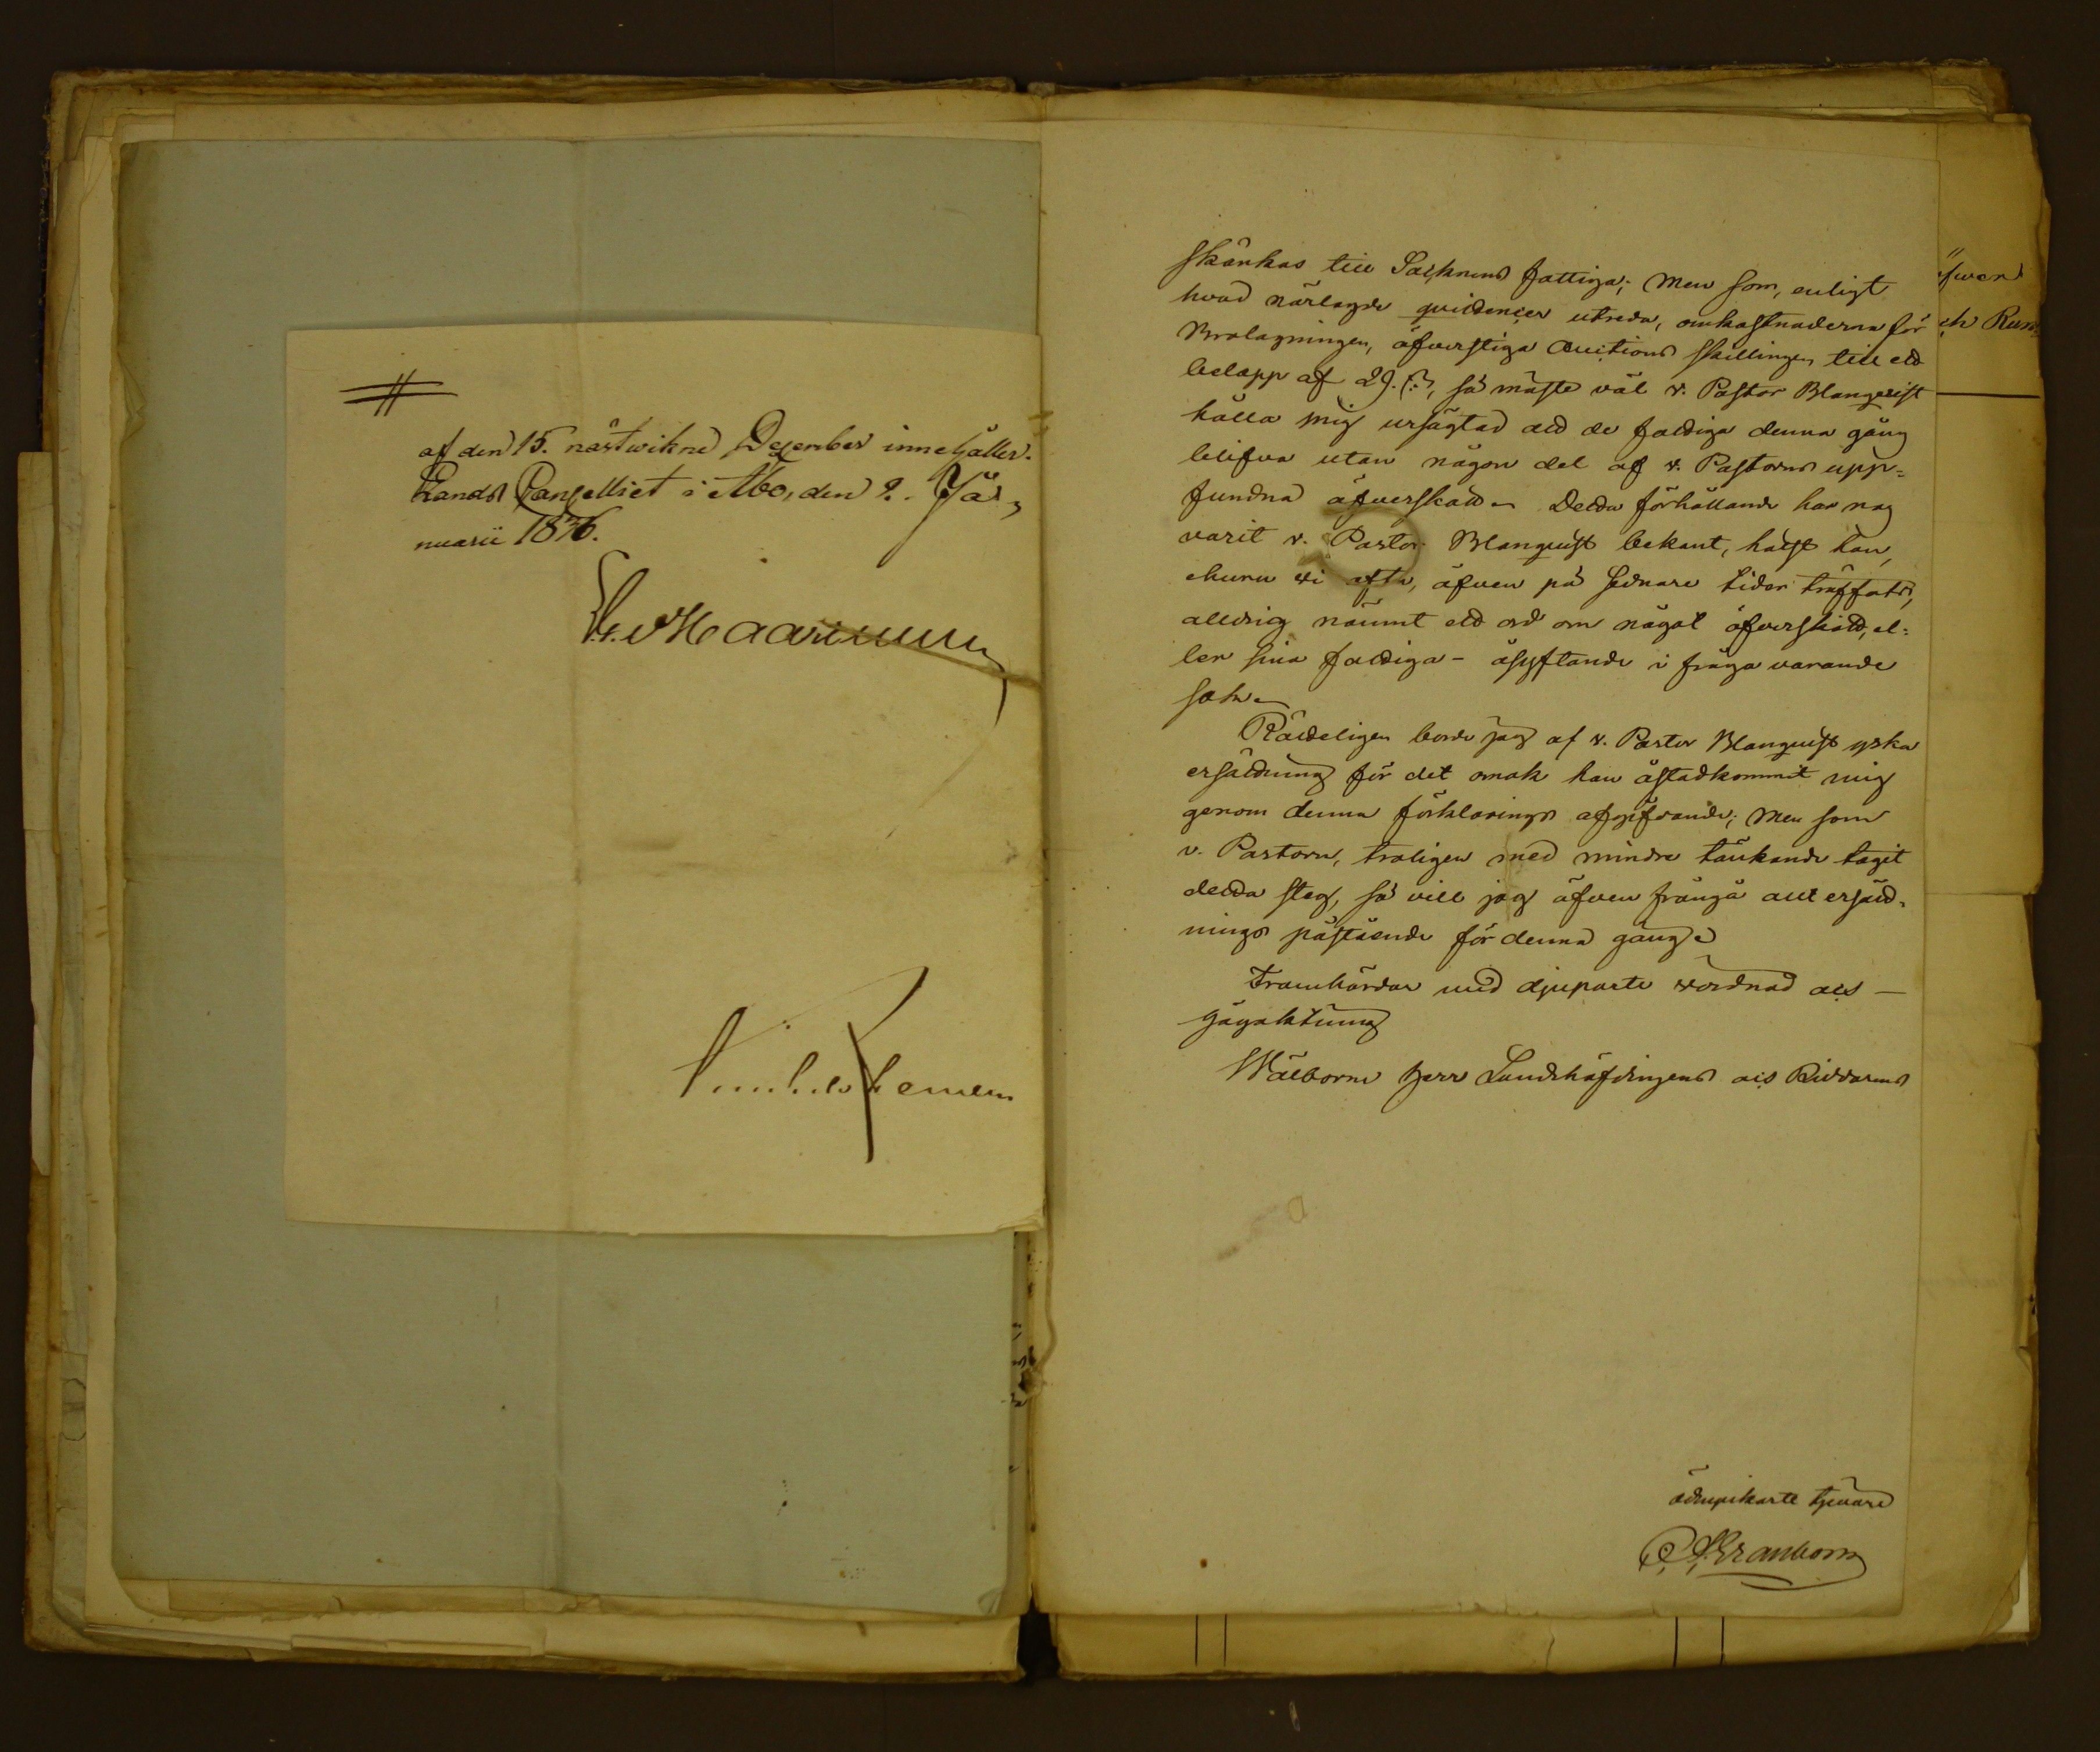 #
af den 15. nästwikne December innehåller.
Lands Cancelliet i Åbo, den 2. Ja-
nuarii 1836.
skänkas till Socknens fattiga; men som, enligt
hvad närlagde qvidencer utreda, omkostnaderna för
Brolagningen, öfverstiga Auctions skillingen till ett
belopp af 29. så måste väl v. Pastor Blanqvist
hålla mig ursägtad att de fattiga denna gång
blifva utan någon del af v. Pastorns upp-
fundna öfverskott. Detta förhållande har nog
varit v. Pastor Blanqvist bekant, hälst han,
ehuru vi ofta, äfven på sednare tider träffats,
alldrig nämnt ett ord om något öfverskott, el-
ler sina fattiga - åsyftande i fråga varande
sak.
Rätteligen borde jag af v. Pastor Blanqvist yrka
ersättning för det omak han åstadkommit mig
genom denna förklarings afgifvande; men som
v. Pastorn, troligen med mindre tänkande tagit
detta steg, så vill jag äfven frångå allt ersätt-
nings påstående för denna gång.
Framhärdar med djupaste vördnad och
högaktning
Wälborne Herr Landshöfdingens och Riddarens
ödmjukaste tjenare
öfwer
ch Rus-